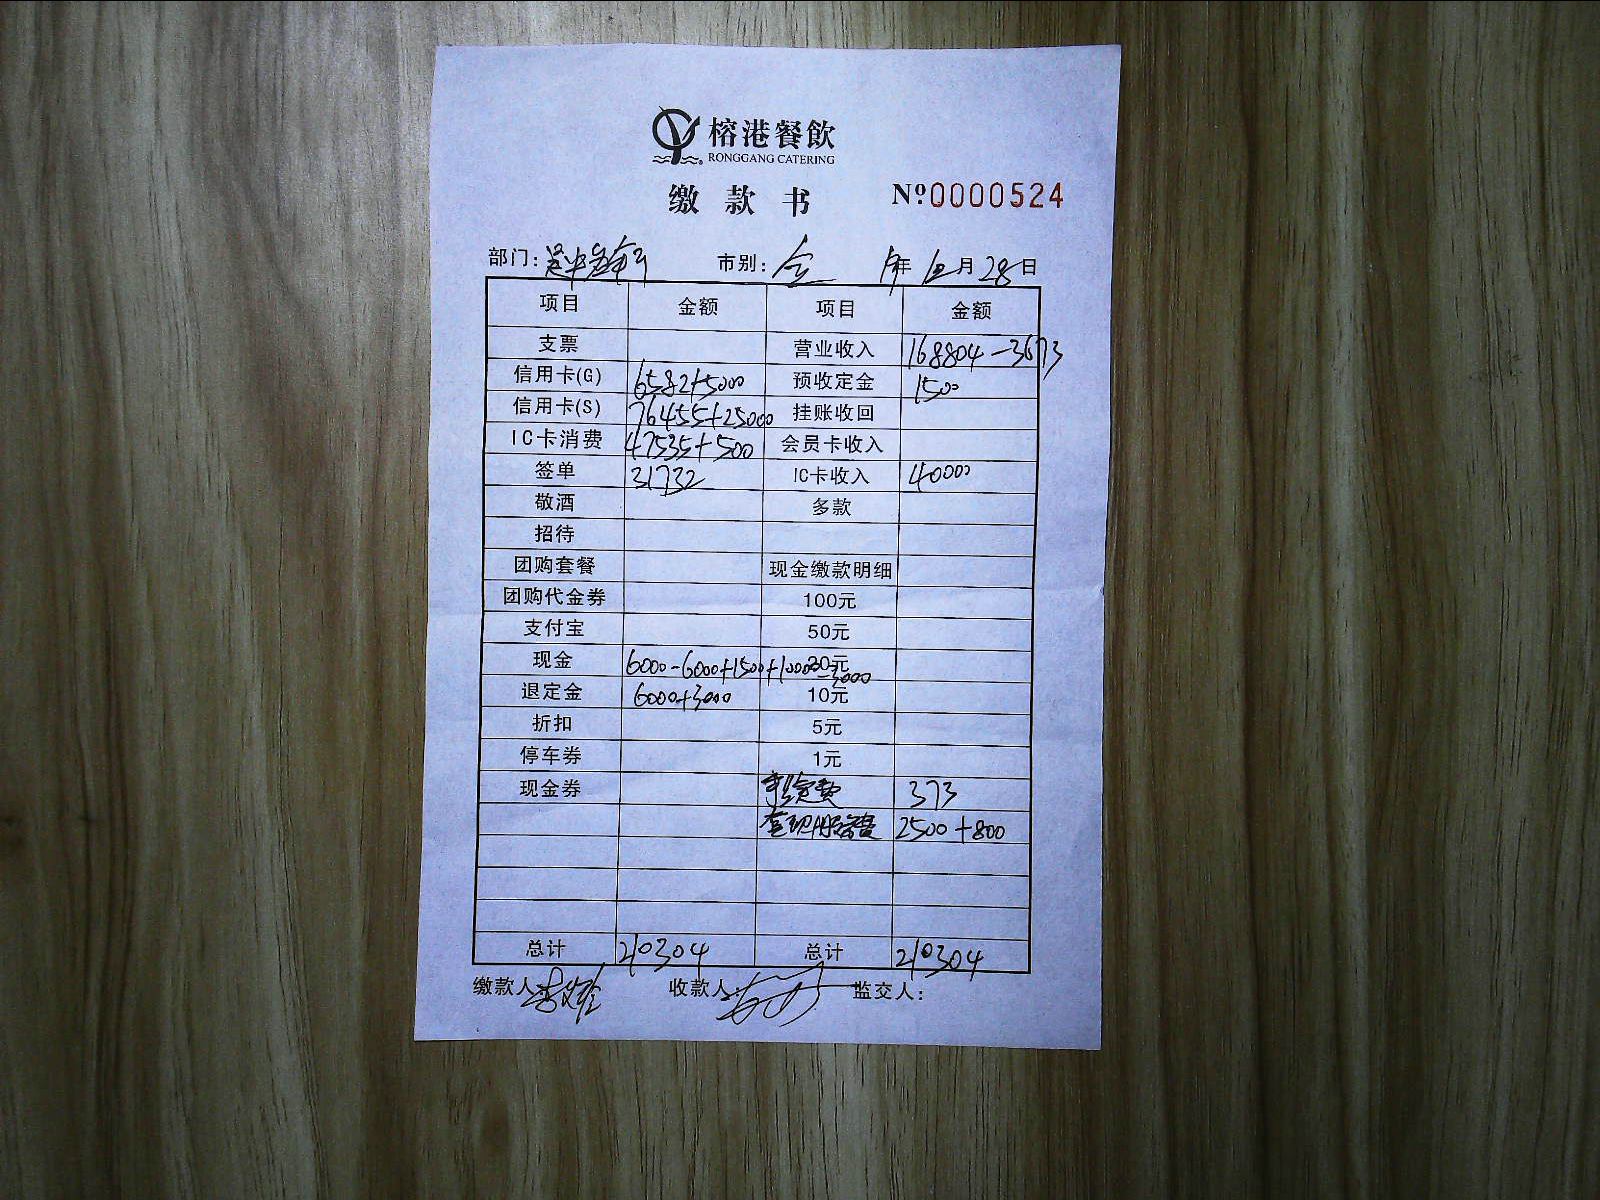 榕港餐飲
RONGGANG CATERING
缴款书 Nº0000524
部门: 市别: 全 年 月 28 日
项目 金额 项目 金额
支票 营业收入 168804-3673
信用卡(G) 6582+5000 预收定金 1500
信用卡(S) 76455+25000 挂账收回
IC卡消费 47535+500 会员卡收入
签单 31732 IC卡收入 40000
敬酒 多款
招待
团购套餐 现金缴款明细
团购代金券 100元
支付宝 50元
现金 6000-6000+1500+10000-3000 20元
退定金 6000+3000 10元
折扣 5元
停车券 1元
现金券 手续费 373
套现服务费 2500+800
总计 210304 总计 210304
缴款人: 收款人: 监交人: